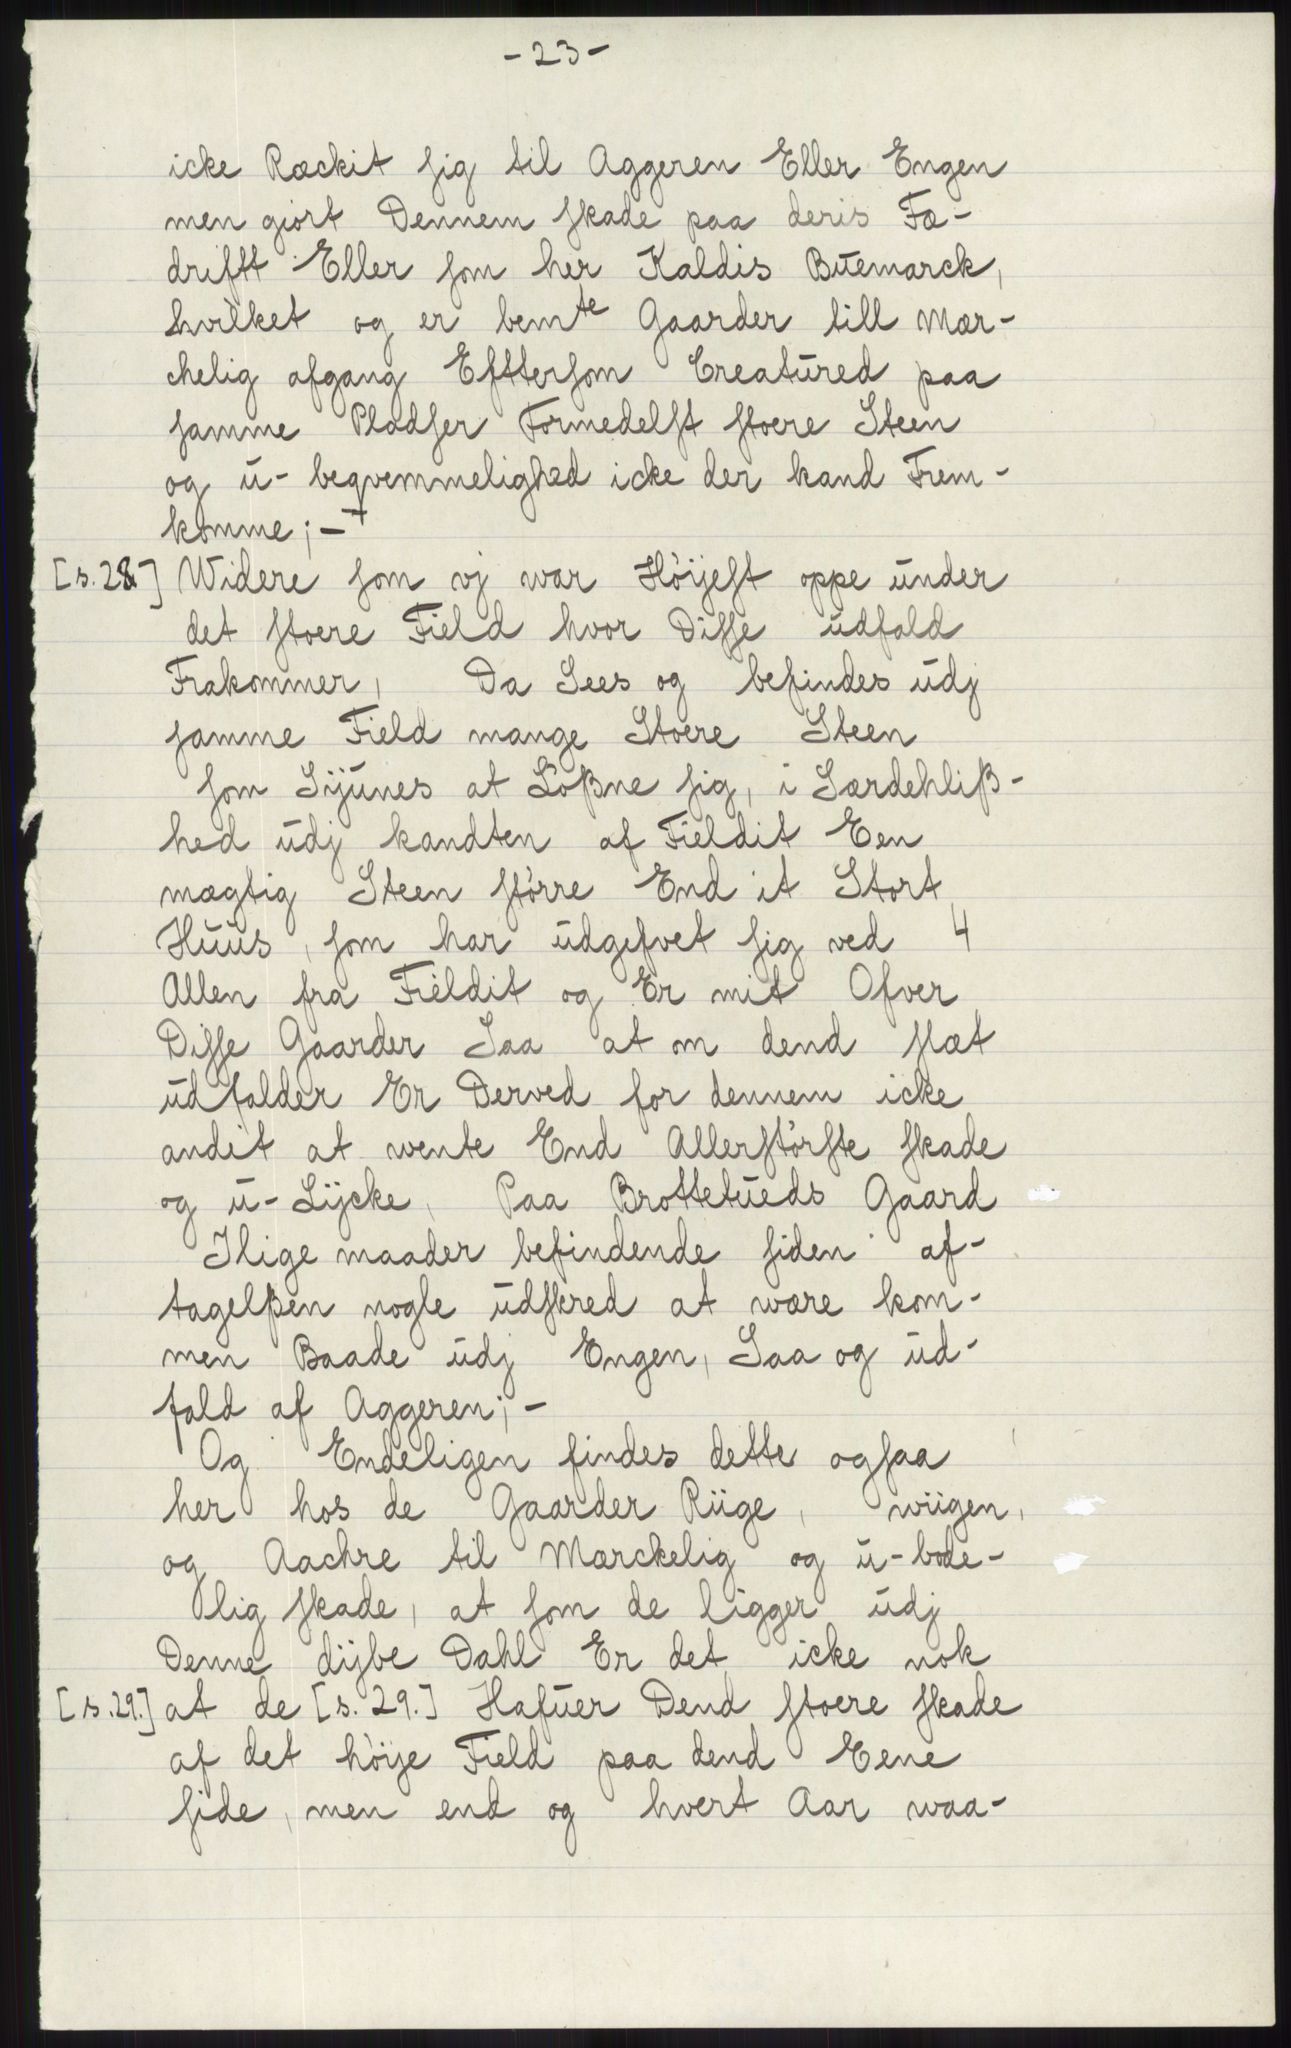 -23-
icke Ræckit sig til Aggeren Eller Engen
men giort Dennem skade paa deris Fæ-
drifft Eller som her Kaldis Buemarck,
hvilket og er bemte Gaarder till Mær-
chelig afgang Efttersom Creatured paa
samme Pladser Formedelst stoere Steen
og u-beqvemmelighed icke der kand Frem-
komme;-
[s.28] Widere som vj war Höijest oppe under
det stoere Field hvor Disse udfald
Frakommer, Da Sees og befindes udj
samme Field mange Stoere Steen
som Sijunes at Lößne sig, i Særdehliß-
hed udj kandten af Fieldit Een
mægtig Steen större End it Stort
Huus, som har udgefvet sig ved 4
Allen fra Fieldit og Er mit Ofver
Disse Gaarder Saa at om dend slæt
udfalder Er Derved for dennem icke
andit at wente End Allerstörste skade
og u-Lijcke, Paa Brottetueds Gaard
Ilige maader befindende siden af-
tagelßen nogle udskred at wære kom-
men Baade udj Engen, Saa og ud-
fald af Aggeren;-
Og Endeligen findes dette ogsaa
her hos de Gaarder Riige, wiigen,
og Aachre til Mærckelig og u-bode-
lig skade, at som de ligger udj
Denne dijbe Dahl Er det icke nok
[s.29.] at de [s. 29.] Hafuer Dend stoere skade
af det höije Field paa dend Eene
side, men end og hvert Aar waa-